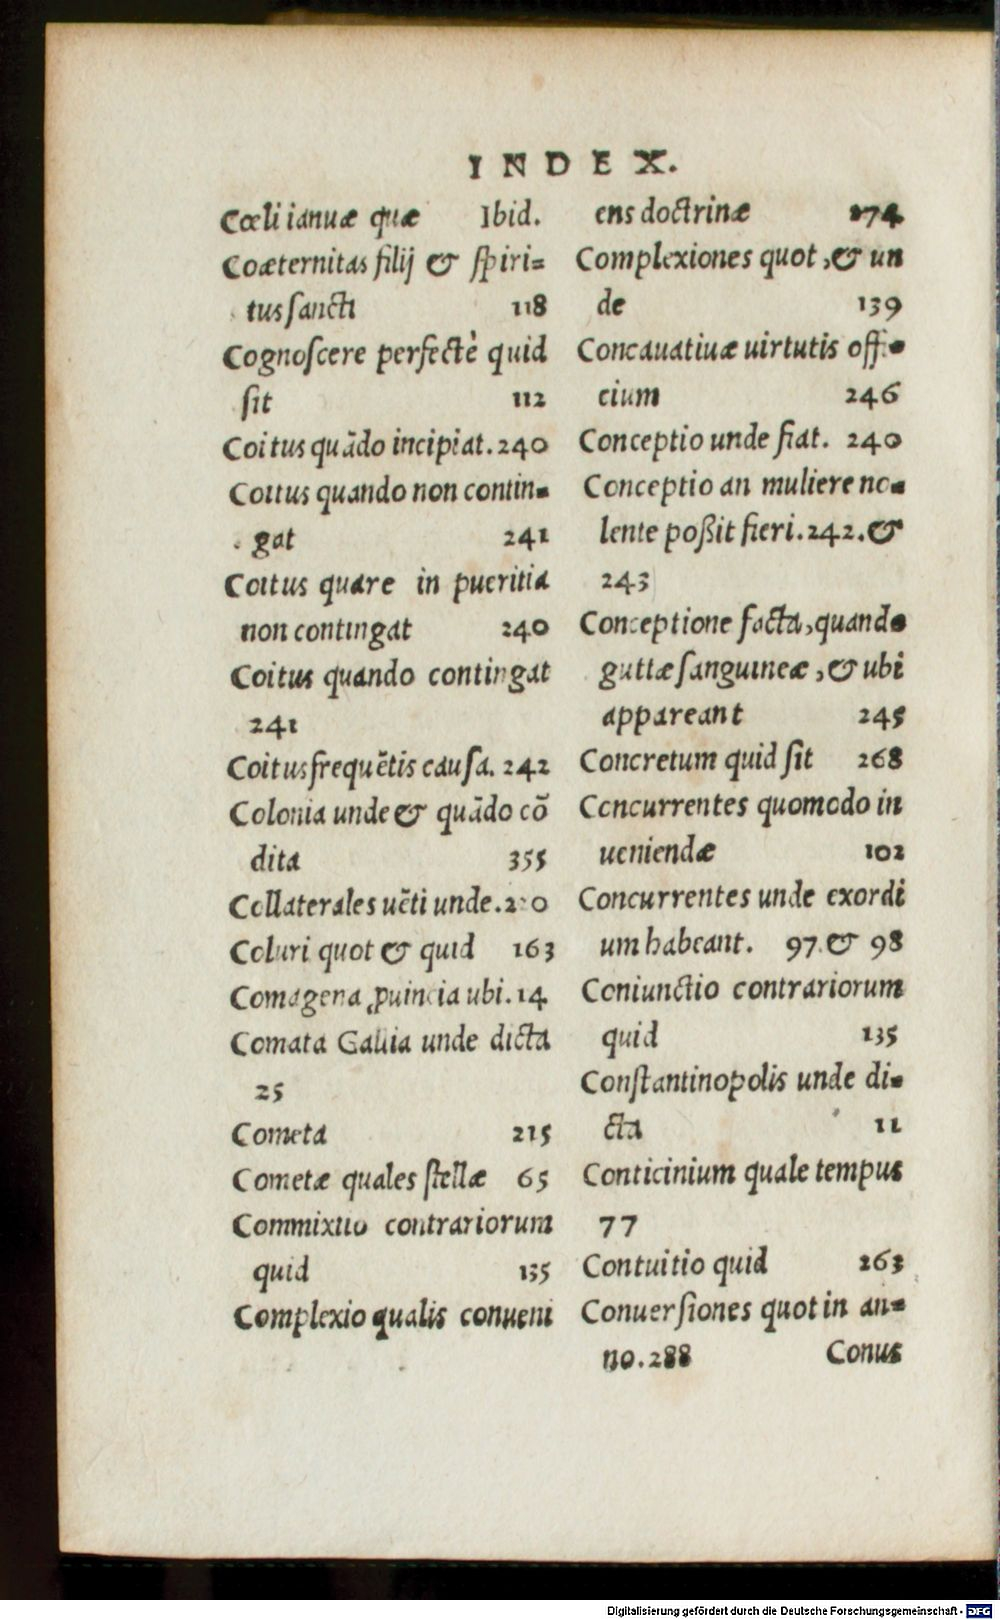 INDEX.
Cœli ianuæ quæ Ibid.
Coæternitas filij & spiri=
tus sancti 118
Cognoscere perfectè quid
sit 112
Coitus quãdo incipiat. 240
Coitus quando non contin=
gat 241
Coitus quare in pueritia
non contingat 240
Coitus quando contingat
241
Coitus frequẽtis causa. 242
Colonia unde & quãdo cõ
dita 355
Collaterales uẽti unde.
Coluri quot & quid 163
Comagena ꝓuincia ubi. 14
Comata Gallia unde dicta
25
Cometa 215
Cometæ quales stellæ 65
Commixtio contrariorum
quid 135
Complexio qualis conueni
ens doctrinæ 274
Complexiones quot, & un
de 139
Concauatiuæ uirtutis offi=
cium 246
Conceptio unde fiat. 240
Conceptio an muliere no=
lente poßit fieri. 242. &
243
Conceptione facta, quando
guttæ sanguineæ, & ubi
appareant 245
Concretum quid sit 268
Concurrentes quomodo in
ueniendæ 102
Concurrentes unde exordi
um habeant. 97. & 98
Coniunctio contrariorum
quid 135
Constantinopolis unde di=
cta 11
Conticinium quale tempus
77
Contuitio quid 263
Conuersiones quot in an=
no. 288 Conus
Digitalisierung gefördert durch die Deutsche Forschungsgemeinschaft - DFG